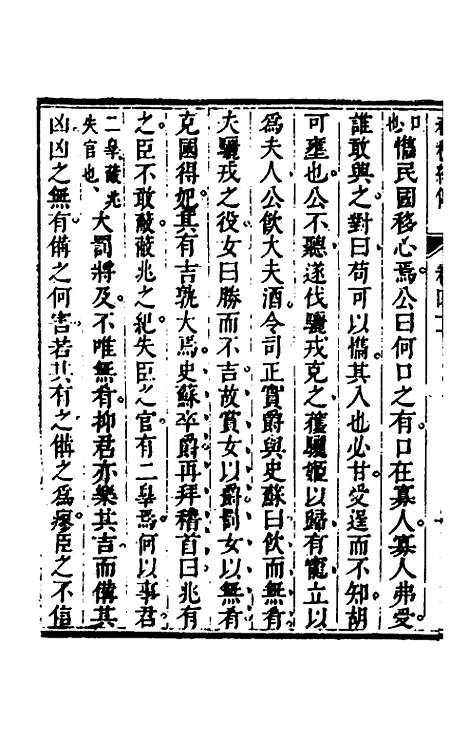 口也。 懏民國移心焉。公曰何口之有。口在寡人。寡人弗受。
誰敢興之。對曰苟可以懏。其入也必甘受。逞而不知。胡
可壅也。公不聽。遂伐驪戎克之。獲驪姬以歸。有寵立以
爲夫人。公飲大夫酒。令司正實爵與史蘇曰飲而無肴。
夫驪戎之役。女曰勝而不吉。故賞女以爵。罰女以無肴。
克國得妃。其有吉孰大焉。史蘇卒爵。再拜稽首曰兆有
之。臣不敢蔽。蔽兆之紀。失臣之官。有二辠焉。何以事君。
二辠蔽兆失官也、 大罰將及。不唯無肴。抑君亦樂其吉而備其
凶。凶之無有。備之何害。若其有之。備之爲瘳。臣之不信